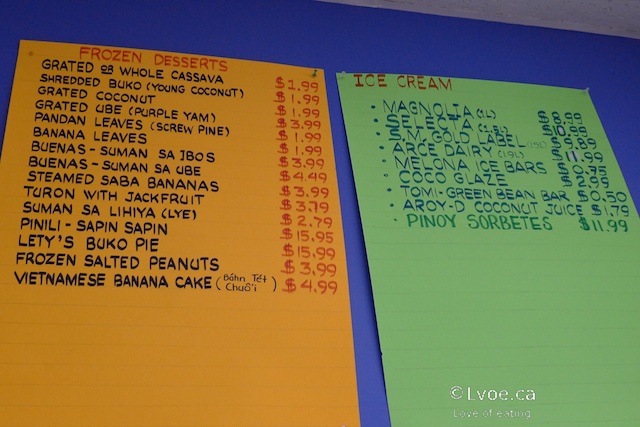 FROZEN DESSERTS
GRATED OR WHOLE CASSAVA $1.99
SHREDDED BUKO (YOUNG COCONUT) $1.99
GRATED COCONUT $1.99
GRATED UBE (PURPLE YAM) $3.99
PANDAN LEAVES (SCREW PINE) $1.99
BANANA LEAVES $1.99
BUENAS - SUMAN SA IBOS $3.99
BUENAS - SUMAN SA UBE $4.49
STEAMED SABA BANANAS $3.99
TURON WITH JACKFRUIT $3.79
SUMAN SA LIHIYA (LYE) $2.79
PINILI - SAPIN SAPIN $15.95
LETY'S BUKO PIE $15.99
FROZEN SALTED PEANUTS $3.99
VIETNAMESE BANANA CAKE (Bánh Tét Chuối) $4.99
ICE CREAM
• MAGNOLIA
• SELECTA
• S.M. GOLD LABEL
• ARCE DAIRY
• MELONA ICE BARS
• COCO GLAZE
• TOMI-GREEN BEAN BAR $0.50
• AROY-D COCONUT JUICE $1.79
• PINOY SORBETES $11.99
©Lvoe.ca
Love of eating